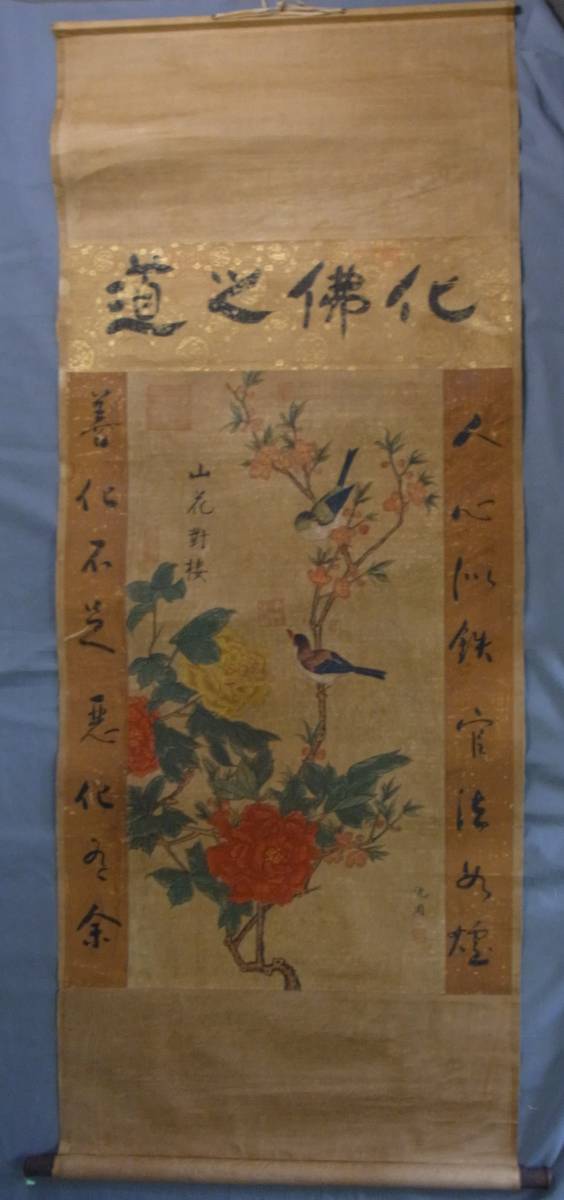 化佛之道
人心似鉄官法如爐
善化不足惡化有余
山花對棲